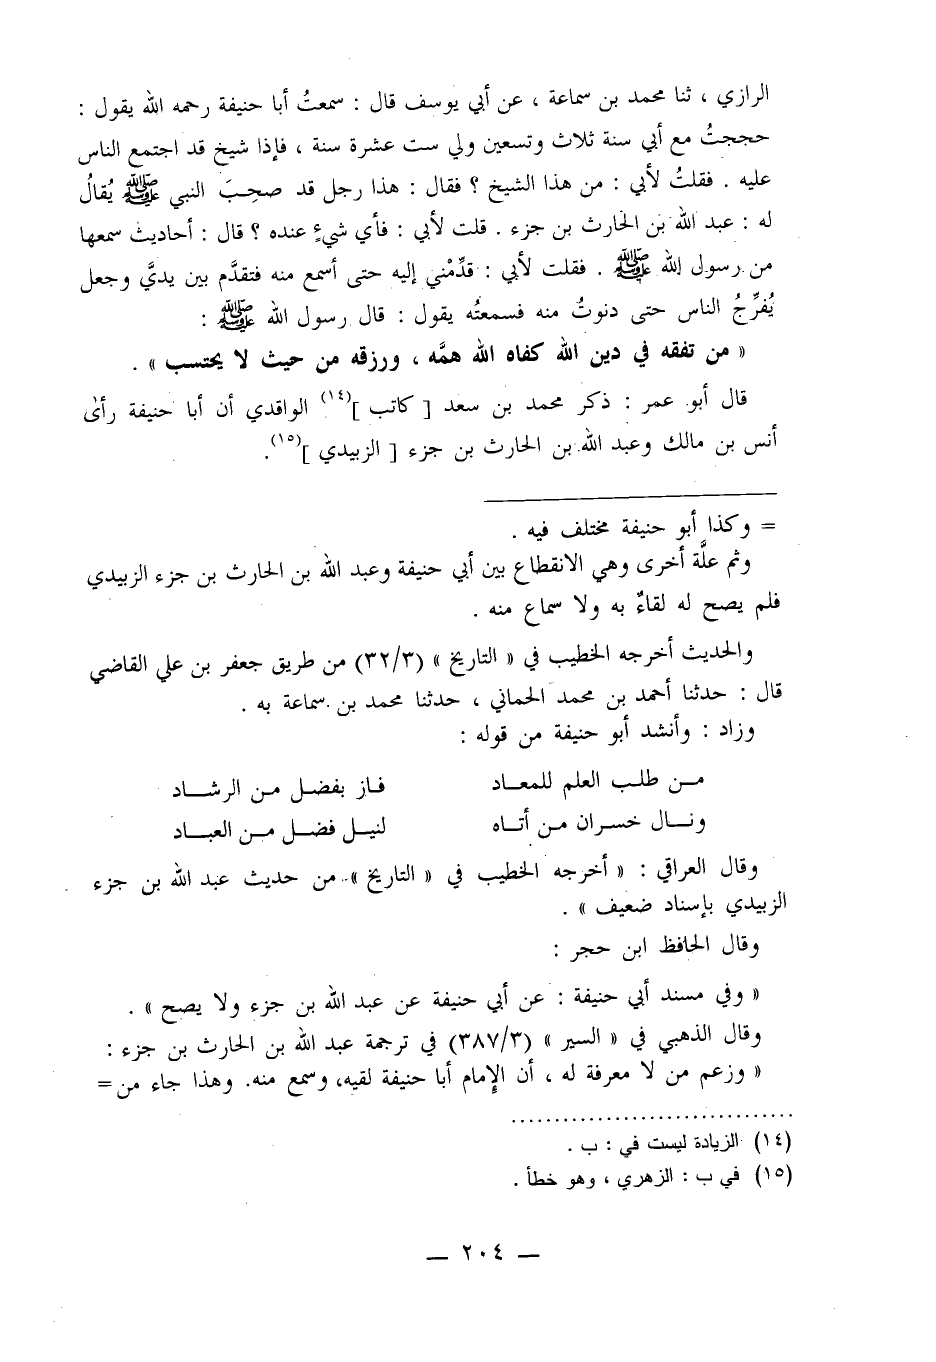 الرازي ، ثنا محمد بن سماعة ، عن أبي يوسف قال : سمعتُ أبا حنيفة رحمه الله يقول :
حججتُ مع أبي سنة ثلاث وتسعين ولي ست عشرة سنة ، فإذا شيخ قد اجتمع الناس
عليه . فقلتُ لأبي : من هذا الشيخ ؟ فقال : هذا رجل قد صحِبَ النبي ﷺ يُقالُ
له : عبد الله بن الحارث بن جزء . قلت لأبي : فأي شيءٍ عنده ؟ قال : أحاديث سمعها
من رسول الله ﷺ . فقلت لأبي : قدِّمْني إليه حتى أسمع منه فتقدَّم بين يديَّ وجعل
يُفرِّجُ الناس حتى دنوتُ منه فسمعتُه يقول : قال رسول الله ﷺ :
« من تفقه في دين الله كفاه الله همَّه ، ورزقه من حيث لا يحتسب » .
قال أبو عمر : ذكر محمد بن سعد [ كاتب ](١٤) الواقدي أن أبا حنيفة رأى
أنس بن مالك وعبد الله بن الحارث بن جزء [ الزبيدي ](١٥).
= وكذا أبو حنيفة مختلف فيه .
وثم علَّة أخرى وهي الانقطاع بين أبي حنيفة وعبد الله بن الحارث بن جزء الزبيدي
فلم يصح له لقاءٌ به ولا سماع منه .
والحديث أخرجه الخطيب في « التاريخ » (٣٢/٣) من طريق جعفر بن علي القاضي
قال : حدثنا أحمد بن محمد الحماني ، حدثنا محمد بن سماعة به .
وزاد : وأنشد أبو حنيفة من قوله :
مـن طلـب العلم للمعـاد فـاز بفضـل مـن الرشـاد
ونـال خسـران مـن أتـاه لنيـل فضـل مـن العبـاد
وقال العراقي : « أخرجه الخطيب في « التاريخ » من حديث عبد الله بن جزء
الزبيدي بإسناد ضعيف » .
وقال الحافظ ابن حجر :
« وفي مسند أبي حنيفة : عن أبي حنيفة عن عبد الله بن جزء ولا يصح » .
وقال الذهبي في « السير » (٣٨٧/٣) في ترجمة عبد الله بن الحارث بن جزء :
« وزعم من لا معرفة له ، أن الإمام أبا حنيفة لقيه، وسمع منه. وهذا جاء من=
(١٤) الزيادة ليست في : ب .
(١٥) في ب : الزهري ، وهو خطأ .
— ٢٠٤ —